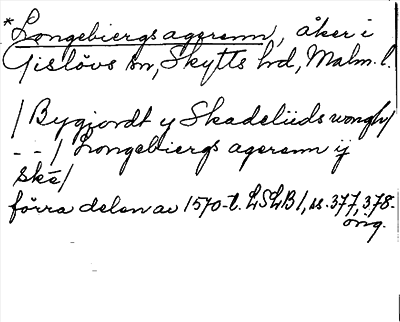 *Longebiergs agerenn, åker i
Gislövs sn, Skytts hd, Malm. l.
/ Bygjordt y Skadeliids wongh/
- - / Longebiergs agerenn ij
Ske/
förra delen av 1570-t. LSLB 1, ss. 377, 378.
orig.